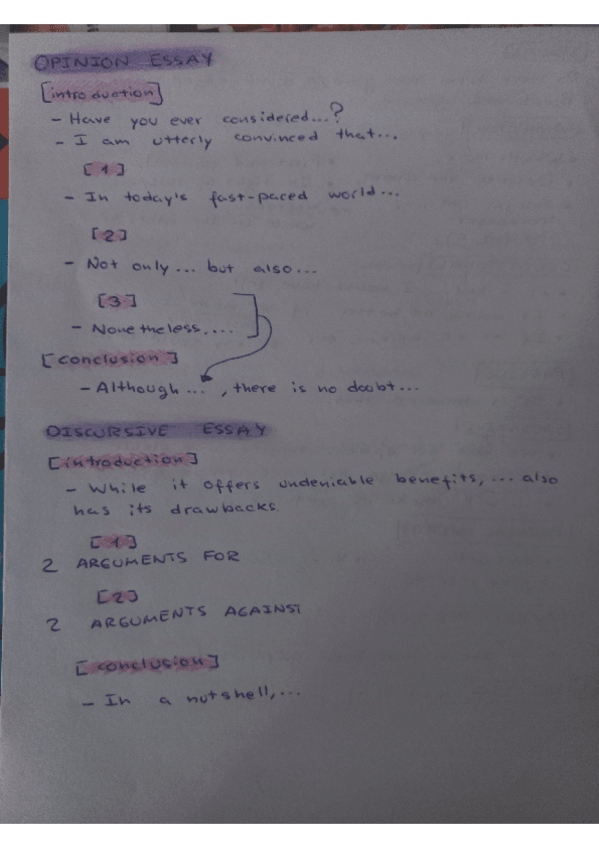 OPINION ESSAY
[introduction]
- Have you ever considered...?
- I am utterly convinced that...
[1]
- In today's fast-paced world...
[2]
- Not only... but also...
[3]
- Nonetheless,...
[conclusion]
- Although..., there is no doubt...
DISCURSIVE ESSAY
[introduction]
- While it offers undeniable benefits,... also
has its drawbacks.
[1]
2 ARGUMENTS FOR
[2]
2 ARGUMENTS AGAINST
[conclusion]
- In a nutshell,...